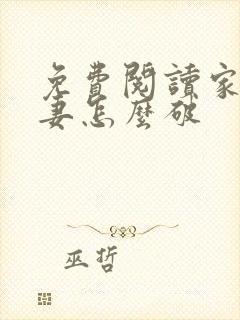 免費閱讀家
妻怎麼破
巫哲